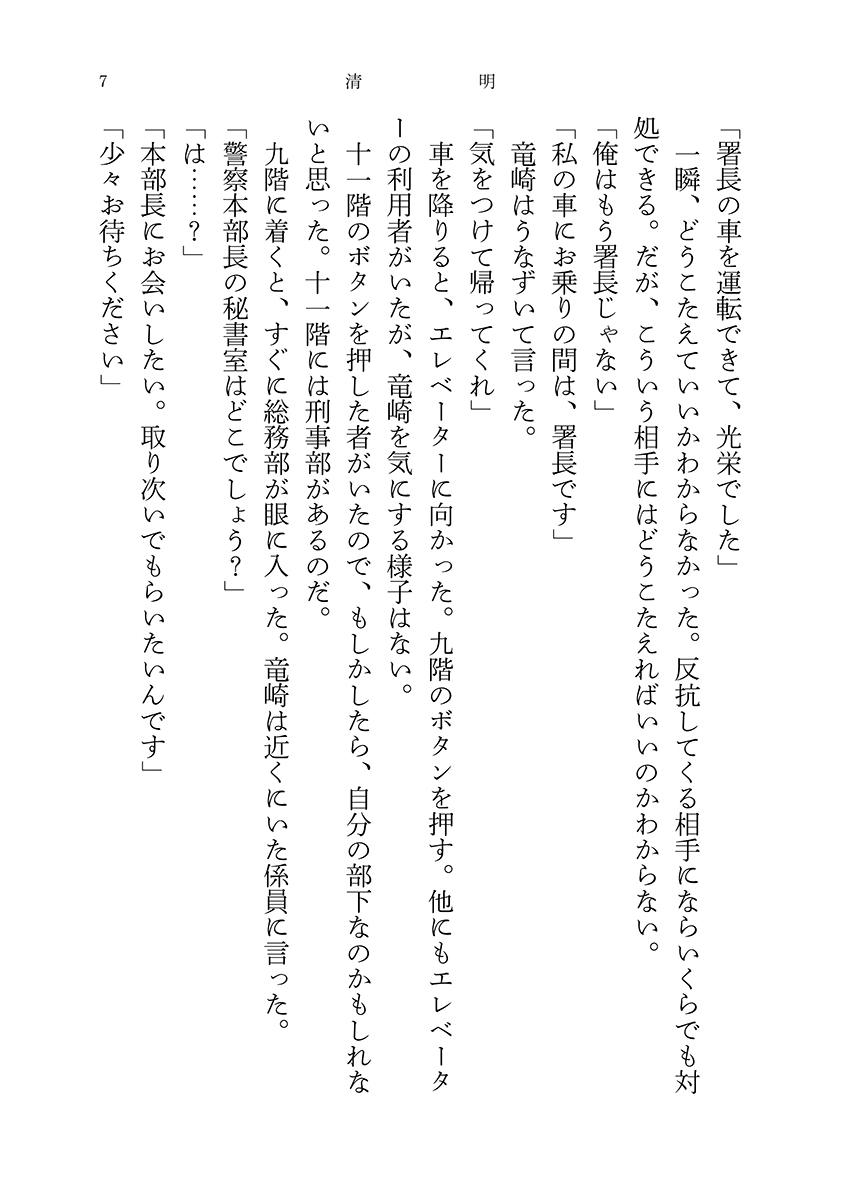 7
清明
「署長の車を運転できて、光栄でした」
一瞬、どうこたえていいかわからなかった。反抗してくる相手にならいくらでも対
処できる。だが、こういう相手にはどうこたえればいいのかわからない。
「俺はもう署長じゃない」
「私の車にお乗りの間は、署長です」
竜崎はうなずいて言った。
「気をつけて帰ってくれ」
車を降りると、エレベーターに向かった。九階のボタンを押す。他にもエレベータ
ーの利用者がいたが、竜崎を気にする様子はない。
十一階のボタンを押した者がいたので、もしかしたら、自分の部下なのかもしれな
いと思った。十一階には刑事部があるのだ。
九階に着くと、すぐに総務部が眼に入った。竜崎は近くにいた係員に言った。
「警察本部長の秘書室はどこでしょう？」
「は……？」
「本部長にお会いしたい。取り次いでもらいたいんです」
「少々お待ちください」